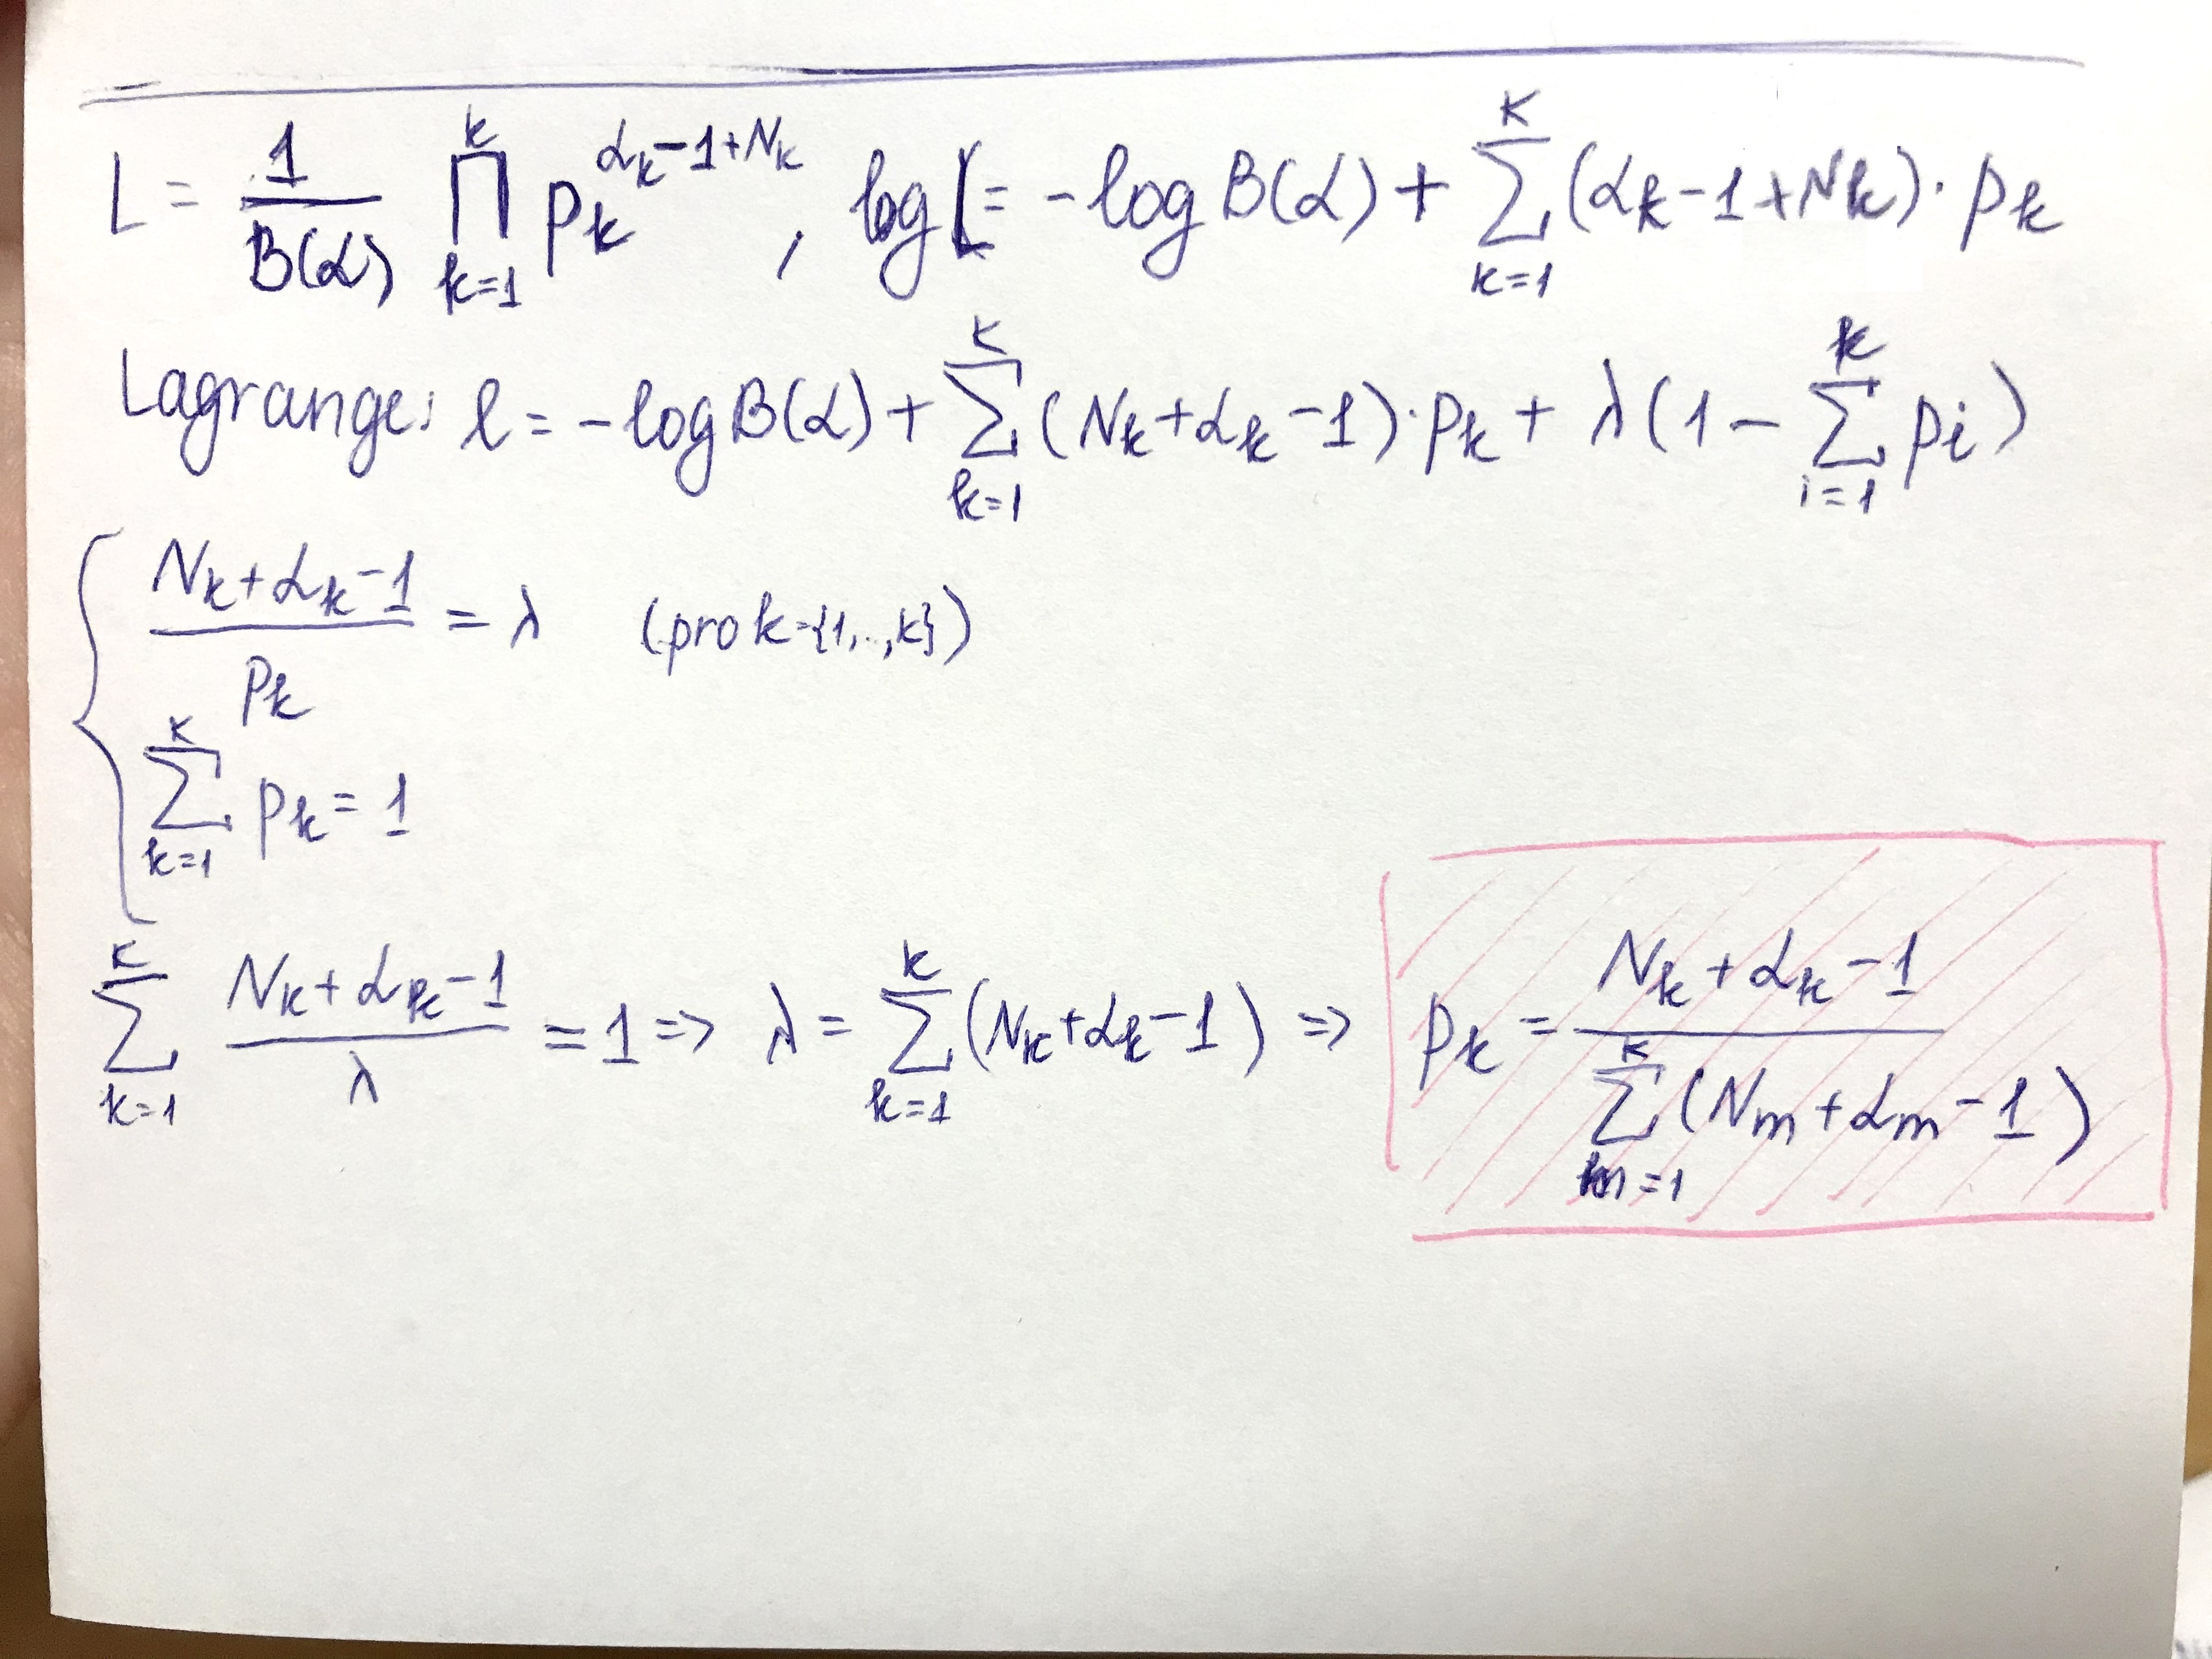 L = \frac{1}{B(α)} \prod_{k=1}^{k} p_k^{α_k-1+N_k}, log L = -log B(α) + \sum_{k=1}^{K} (α_k-1+N_k)·p_k
Lagrange: l = -log B(α) + \sum_{k=1}^{K} (N_k+α_k-1)·p_k + λ(1 - \sum_{i=1}^{k} p_i)
\frac{N_k+α_k-1}{p_k} = λ (pro k={1,..,K})
\sum_{k=1}^{K} p_k = 1
\sum_{k=1}^{K} \frac{N_k+α_k-1}{λ} = 1 => λ = \sum_{k=1}^{K} (N_k+α_k-1) => p_k = \frac{N_k+α_k-1}{\sum_{m=1}^{K} (N_m+α_m-1)}